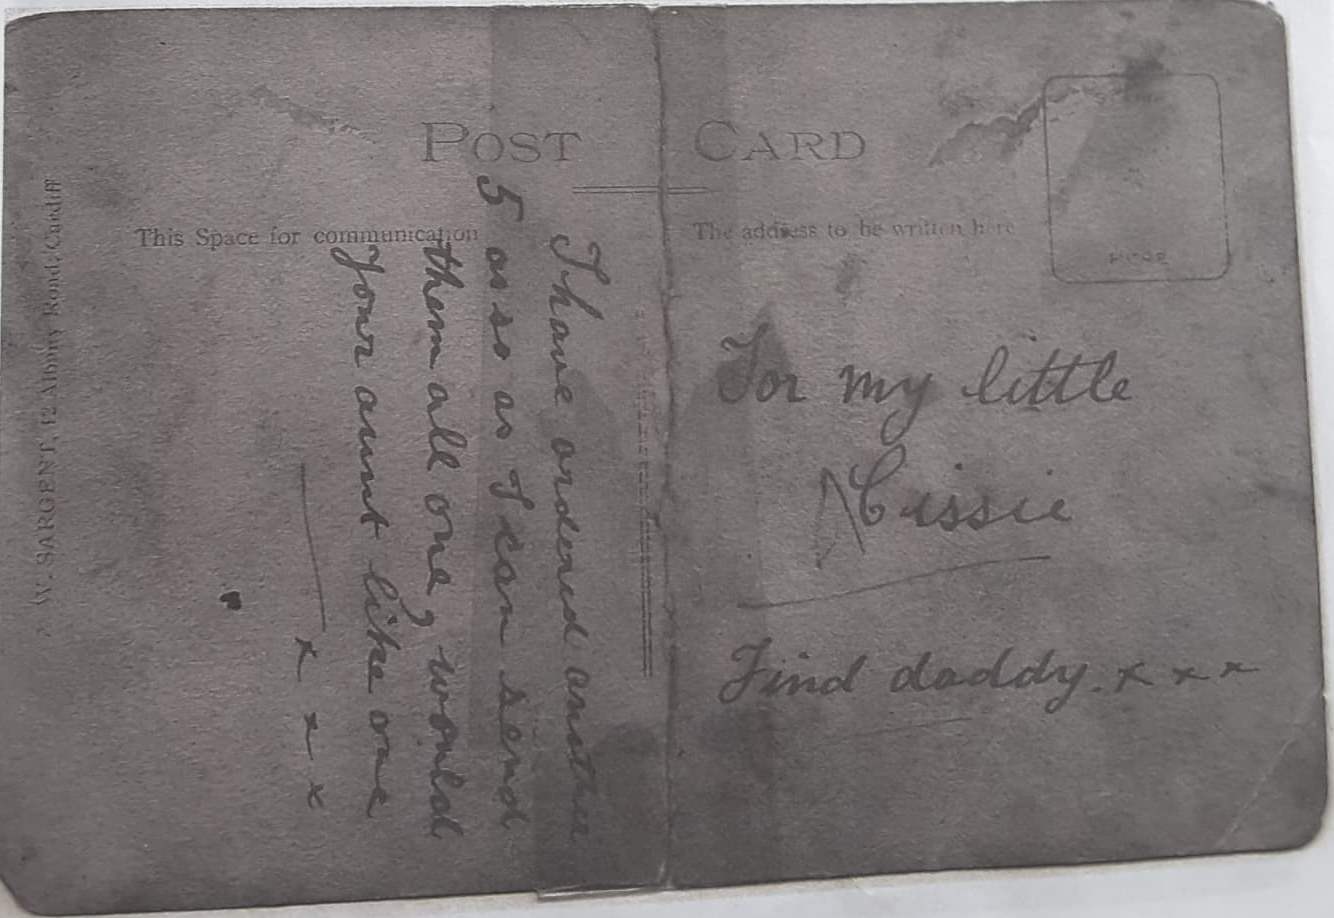 POST CARD
This Space for communication
The address to be written here
I have ordered another
5 as so as I can send
them all one, would
your aunt like one
x x x
For my little
Cissie
Find daddy. x x x
W. SARGENT, 12 Albany Road, Cardiff